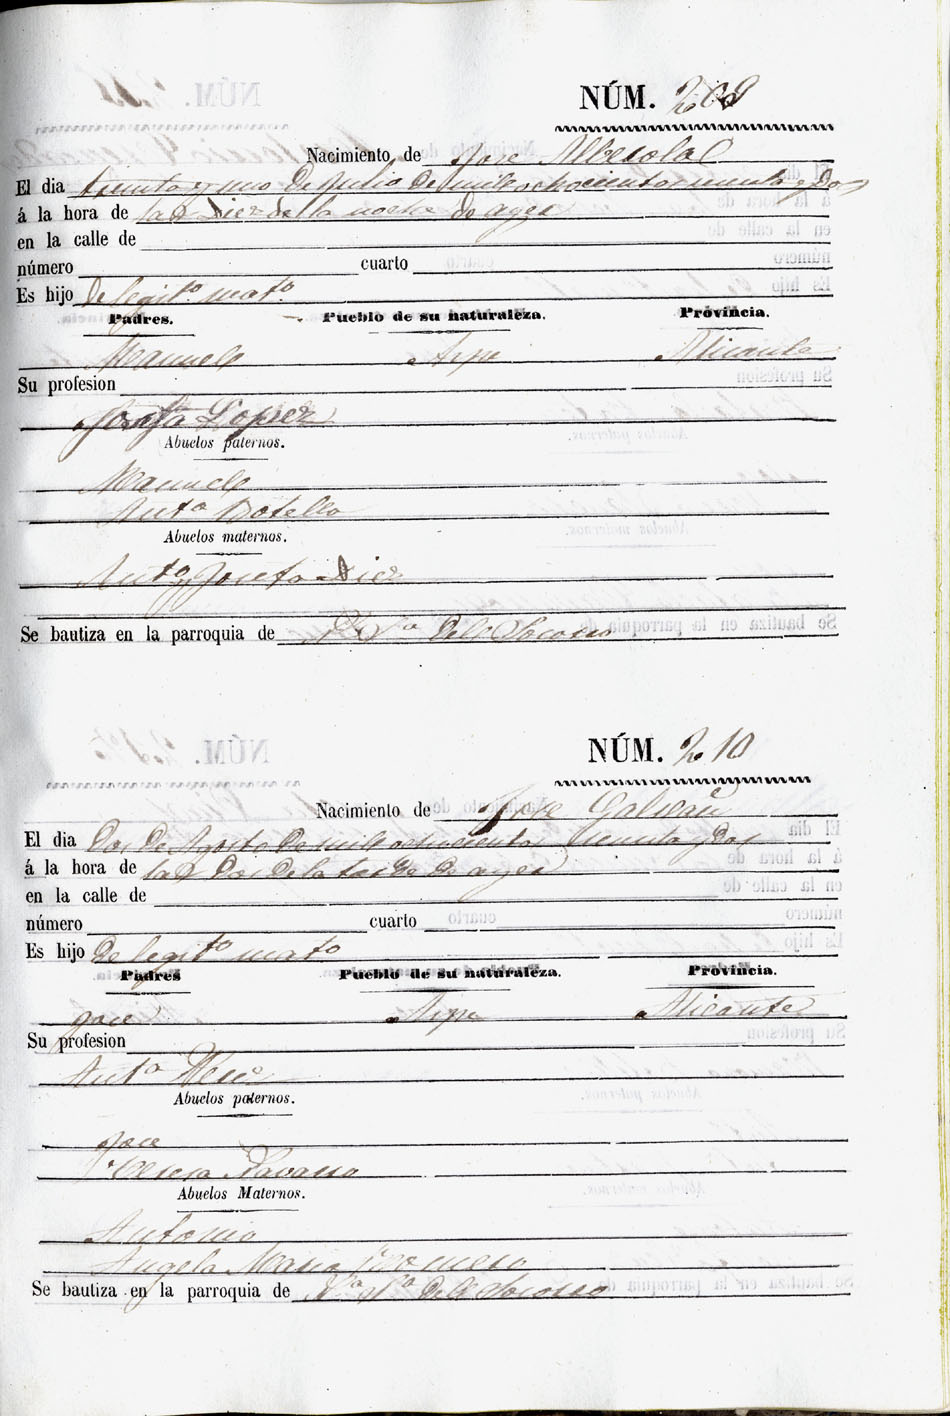 NÚM. 209
Nacimiento de Jose Alberola
El dia treinta y uno de Julio de mil ochocientos treinta y dos
á la hora de las Diez de la noche de ayer
en la calle de
número cuarto
Es hijo de legit.º mat.º
Padres. Pueblo de su naturaleza. Provincia.
Manuel Aspe Alicante
Su profesion
Josefa Lopez
Abuelos paternos.
Manuel
Ant.ª Botella
Abuelos maternos.
Ant.º y Josefa Diez
Se bautiza en la parroquia de N.ª S.ª del Socorro
NÚM. 210
Nacimiento de Jose Galvañ
El dia Dos de Agosto de mil ochocientos treinta y dos
á la hora de las Dos de la tarde de ayer
en la calle de
número cuarto
Es hijo de legit.º mat.º
Padres Pueblo de su naturaleza. Provincia.
Jose Aspe Alicante
Su profesion
Ant.ª
Abuelos paternos.
Jose
Teresa Navarro
Abuelos Maternos.
Antonio
Angela Maria Romero
Se bautiza en la parroquia de N.ª S.ª del Socorro